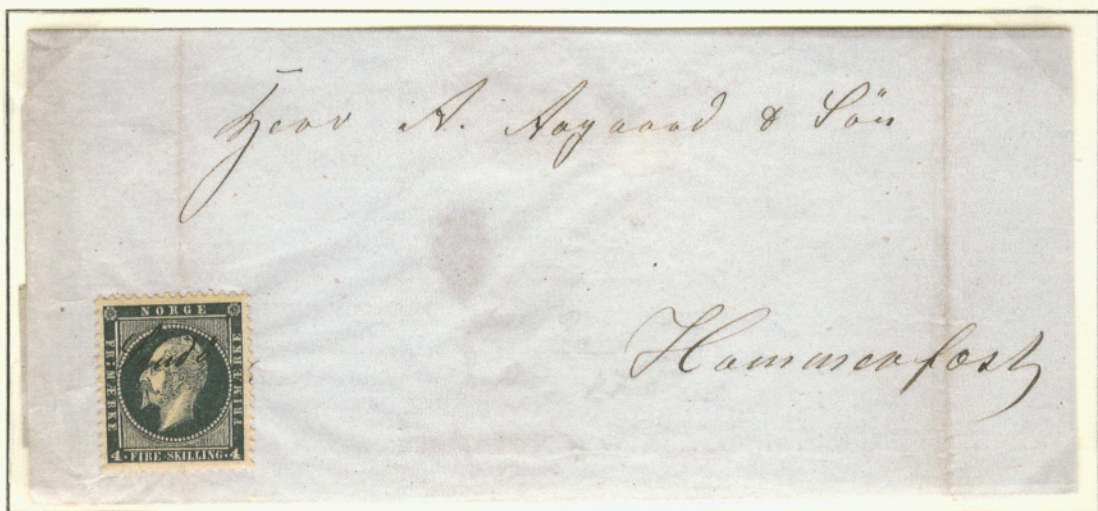 Herr A. Aagaard & Sön
Hammerfest
NORGE
FRIMÆRKE
FRIMÆRKE
4 · FIRE SKILLING · 4